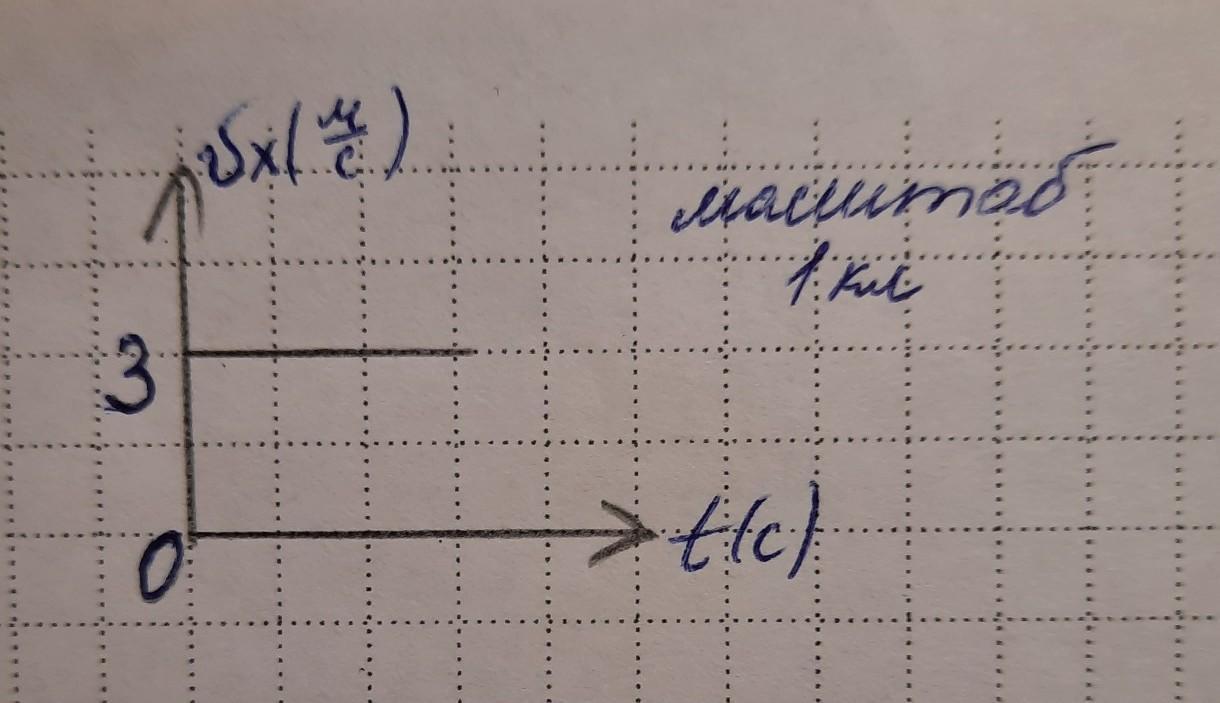 υx(м/с)
масштаб
1 кл
3
0
t(c)